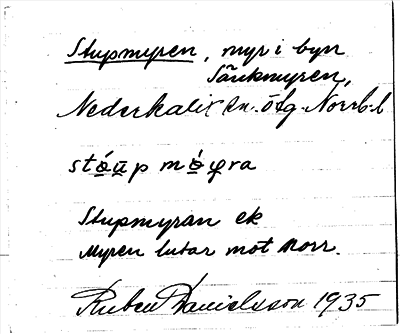 Stupmyren, myr i byn
Sänkmyren,
Nederkalix sn. ötg. Norrb. l
stó̲u̲p mò̲φra
Stupmyran ek
Myren lutar mot norr.
Ruben Danielsson 1935